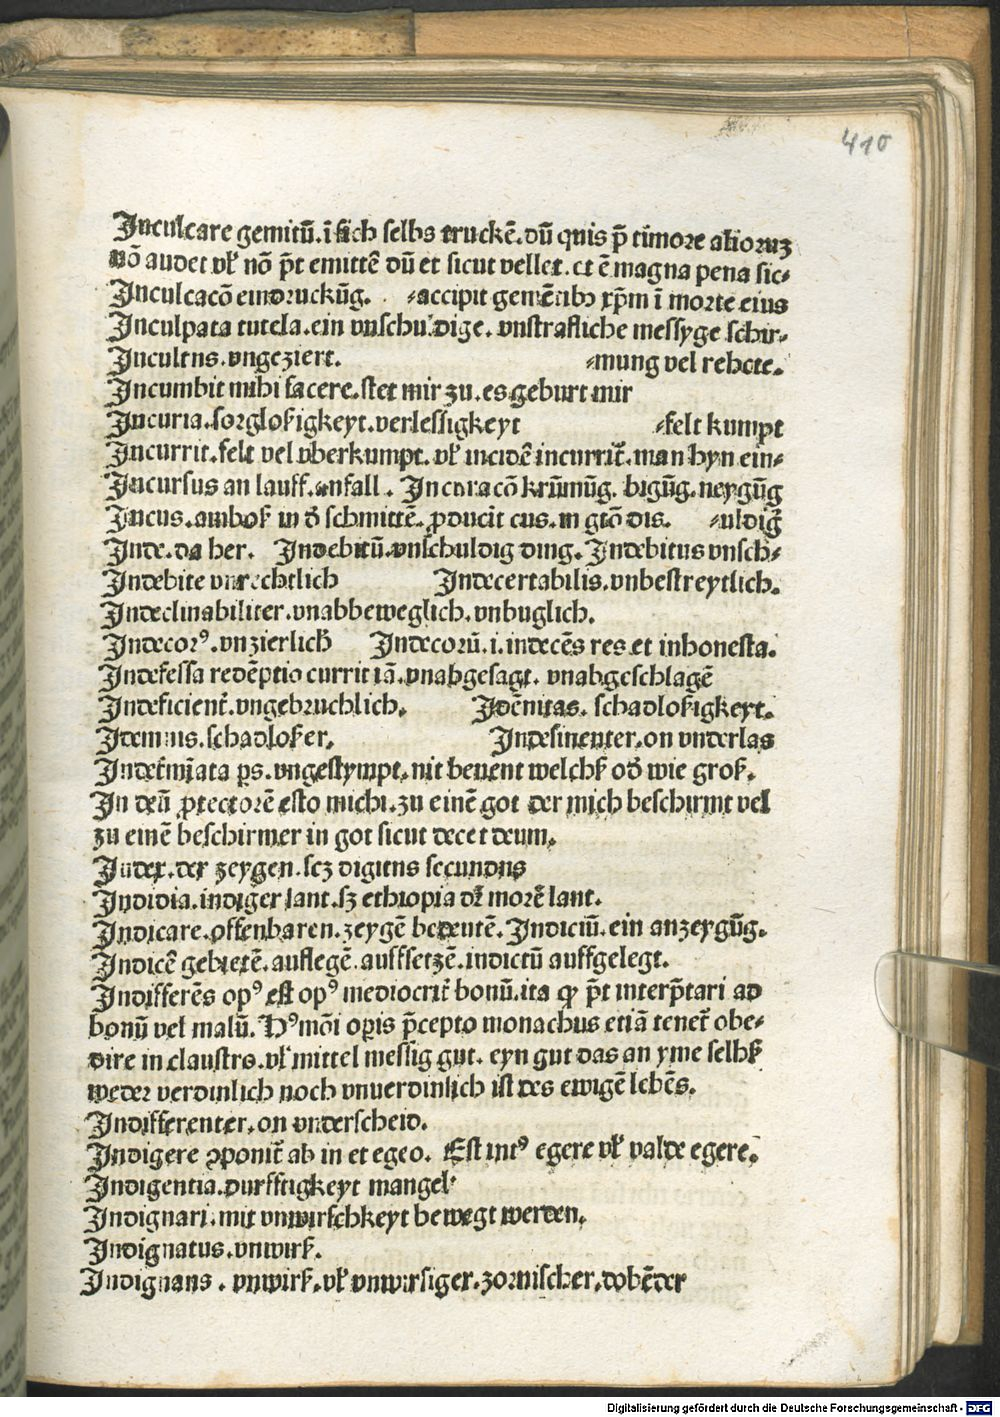 410
Inculcare gemitū. ī sich selbs truckē. dū quis p̄ timore alioruz
nō audet vl' nō p̄t emittē dū et sicut vellet. et ē magna pena sic⸗
Inculcacō eindruckūg. ⸗accipit gemētibꝫ xp̄m ī morte eius
Inculpata tutela. ein vnschuldige. vnstrafliche messyge schir⸗
Incultus. vngeziert. ⸗mung vel rehote.
Incumbit mihi facere. stet mir zu. es geburt mir
Incuria. sorgloßigkeyt. verlessigkeyt ⸗felt kumpt
Incurrit. felt vel vberkumpt. vl' incidē incurrit̄. man hyn ein⸗
Incursus an lauff. anfall. Incuracō krūmūg. bigūg. neygūg
Incus. amboß in d̄ schmittē. ꝓducit cus. in gtō dis. ⸗uldiḡ
Inde. da her. Indebitū. vnschuldig ding. Indebitus vnsch⸗
Indebite vnrechtlich Indecertabilis. vnbestreytlich.
Indeclinabiliter. vnabbeweglich. vnbuglich.
Indecorꝰ. vnzierlich Indecorū. i. indecēs res et inhonesta.
Indefessa redēptio currit iā. vnabgesagt. vnabgeschlagē
Indeficient̄. vngebruchlich. Idēnitas. schadloßigkeyt.
Idemnis. schadloßer. Indesinenter. on vnderlas
Indet̄mīata ps. vngestympt. nit benent welchß od̄ wie groß.
In deū ꝓtectorē esto michi. zu einē got der mich beschirmt vel
zu einē beschirmer in got sicut decet deum.
Index. der zeygen. scz digitus secundus
Indidia. indiger lant. sꝫ ethiopia dꝛ̄ morē lant.
Indicare. offenbaren. zeygē bedeutē. Indiciū. ein anzeygūg.
Indicē gebietē. auflegē. auffsetzē. indictū auffgelegt.
Indifferēs opꝰ est opꝰ mediocrit̄ bonū. ita ꝙ p̄t interp̄tari ad
bonū vel malū. Hꝰmōi opis p̄cepto monachus etiā tenet̄ obe⸗
dire in claustro. vl' mittel messig gut. eyn gut das an yme selbß
weder verdinlich noch vnuerdinlich ist des ewigē lebēs.
Indifferenter. on vnderscheid.
Indigere ↄponit̄ ab in et egeo. Est intꝰ egere vl' valde egere.
Indigentia. durfftigkeyt mangel
Indignari. mit vnwirschkeyt bewegt werden.
Indignatus. vnwirß.
Indignans. vnwirß. vl' vnwirsiger. zornischer. dobēder
Digitalisierung gefördert durch die Deutsche Forschungsgemeinschaft - DFG